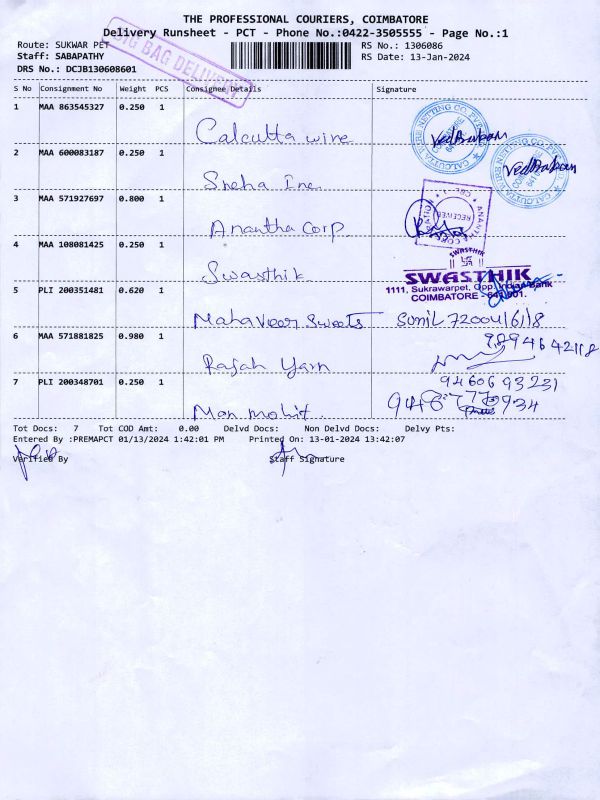 THE PROFESSIONAL COURIERS, COIMBATORE
Delivery Runsheet - PCT - Phone No.:0422-3505555 - Page No.:1
Route: SUKWAR PET
RS No.: 1306086
Staff: SABAPATHY
RS Date: 13-Jan-2024
DRS No.: DCJB130608601
BIG BAG DELIVERY
S No Consignment No Weight PCS Consignee Details Signature
1 MAA 863545327 0.250 1 Calcutta wire
2 MAA 600083187 0.250 1 Sneha Inc.
3 MAA 571927697 0.800 1 Anantha Corp
RECEIVED
4 MAA 108081425 0.250 1 Swasthik
SWASTHIK
SWASTHIK
1111, Sukrawarpet, Opp. Indian Bank
COIMBATORE - 641 001.
5 PLI 200351481 0.620 1 Mahaveer Sweets Sunil 7200416118
6 MAA 571881825 0.980 1 Rajah Yarn 9894642118
7 PLI 200348701 0.250 1 Man mohit. 9460693231
Tot Docs: 7 Tot COD Amt: 0.00 Delvd Docs: Non Delvd Docs: Delvy Pts:
Entered By :PREMAPCT 01/13/2024 1:42:01 PM Printed On: 13-01-2024 13:42:07
Verified By Staff Signature